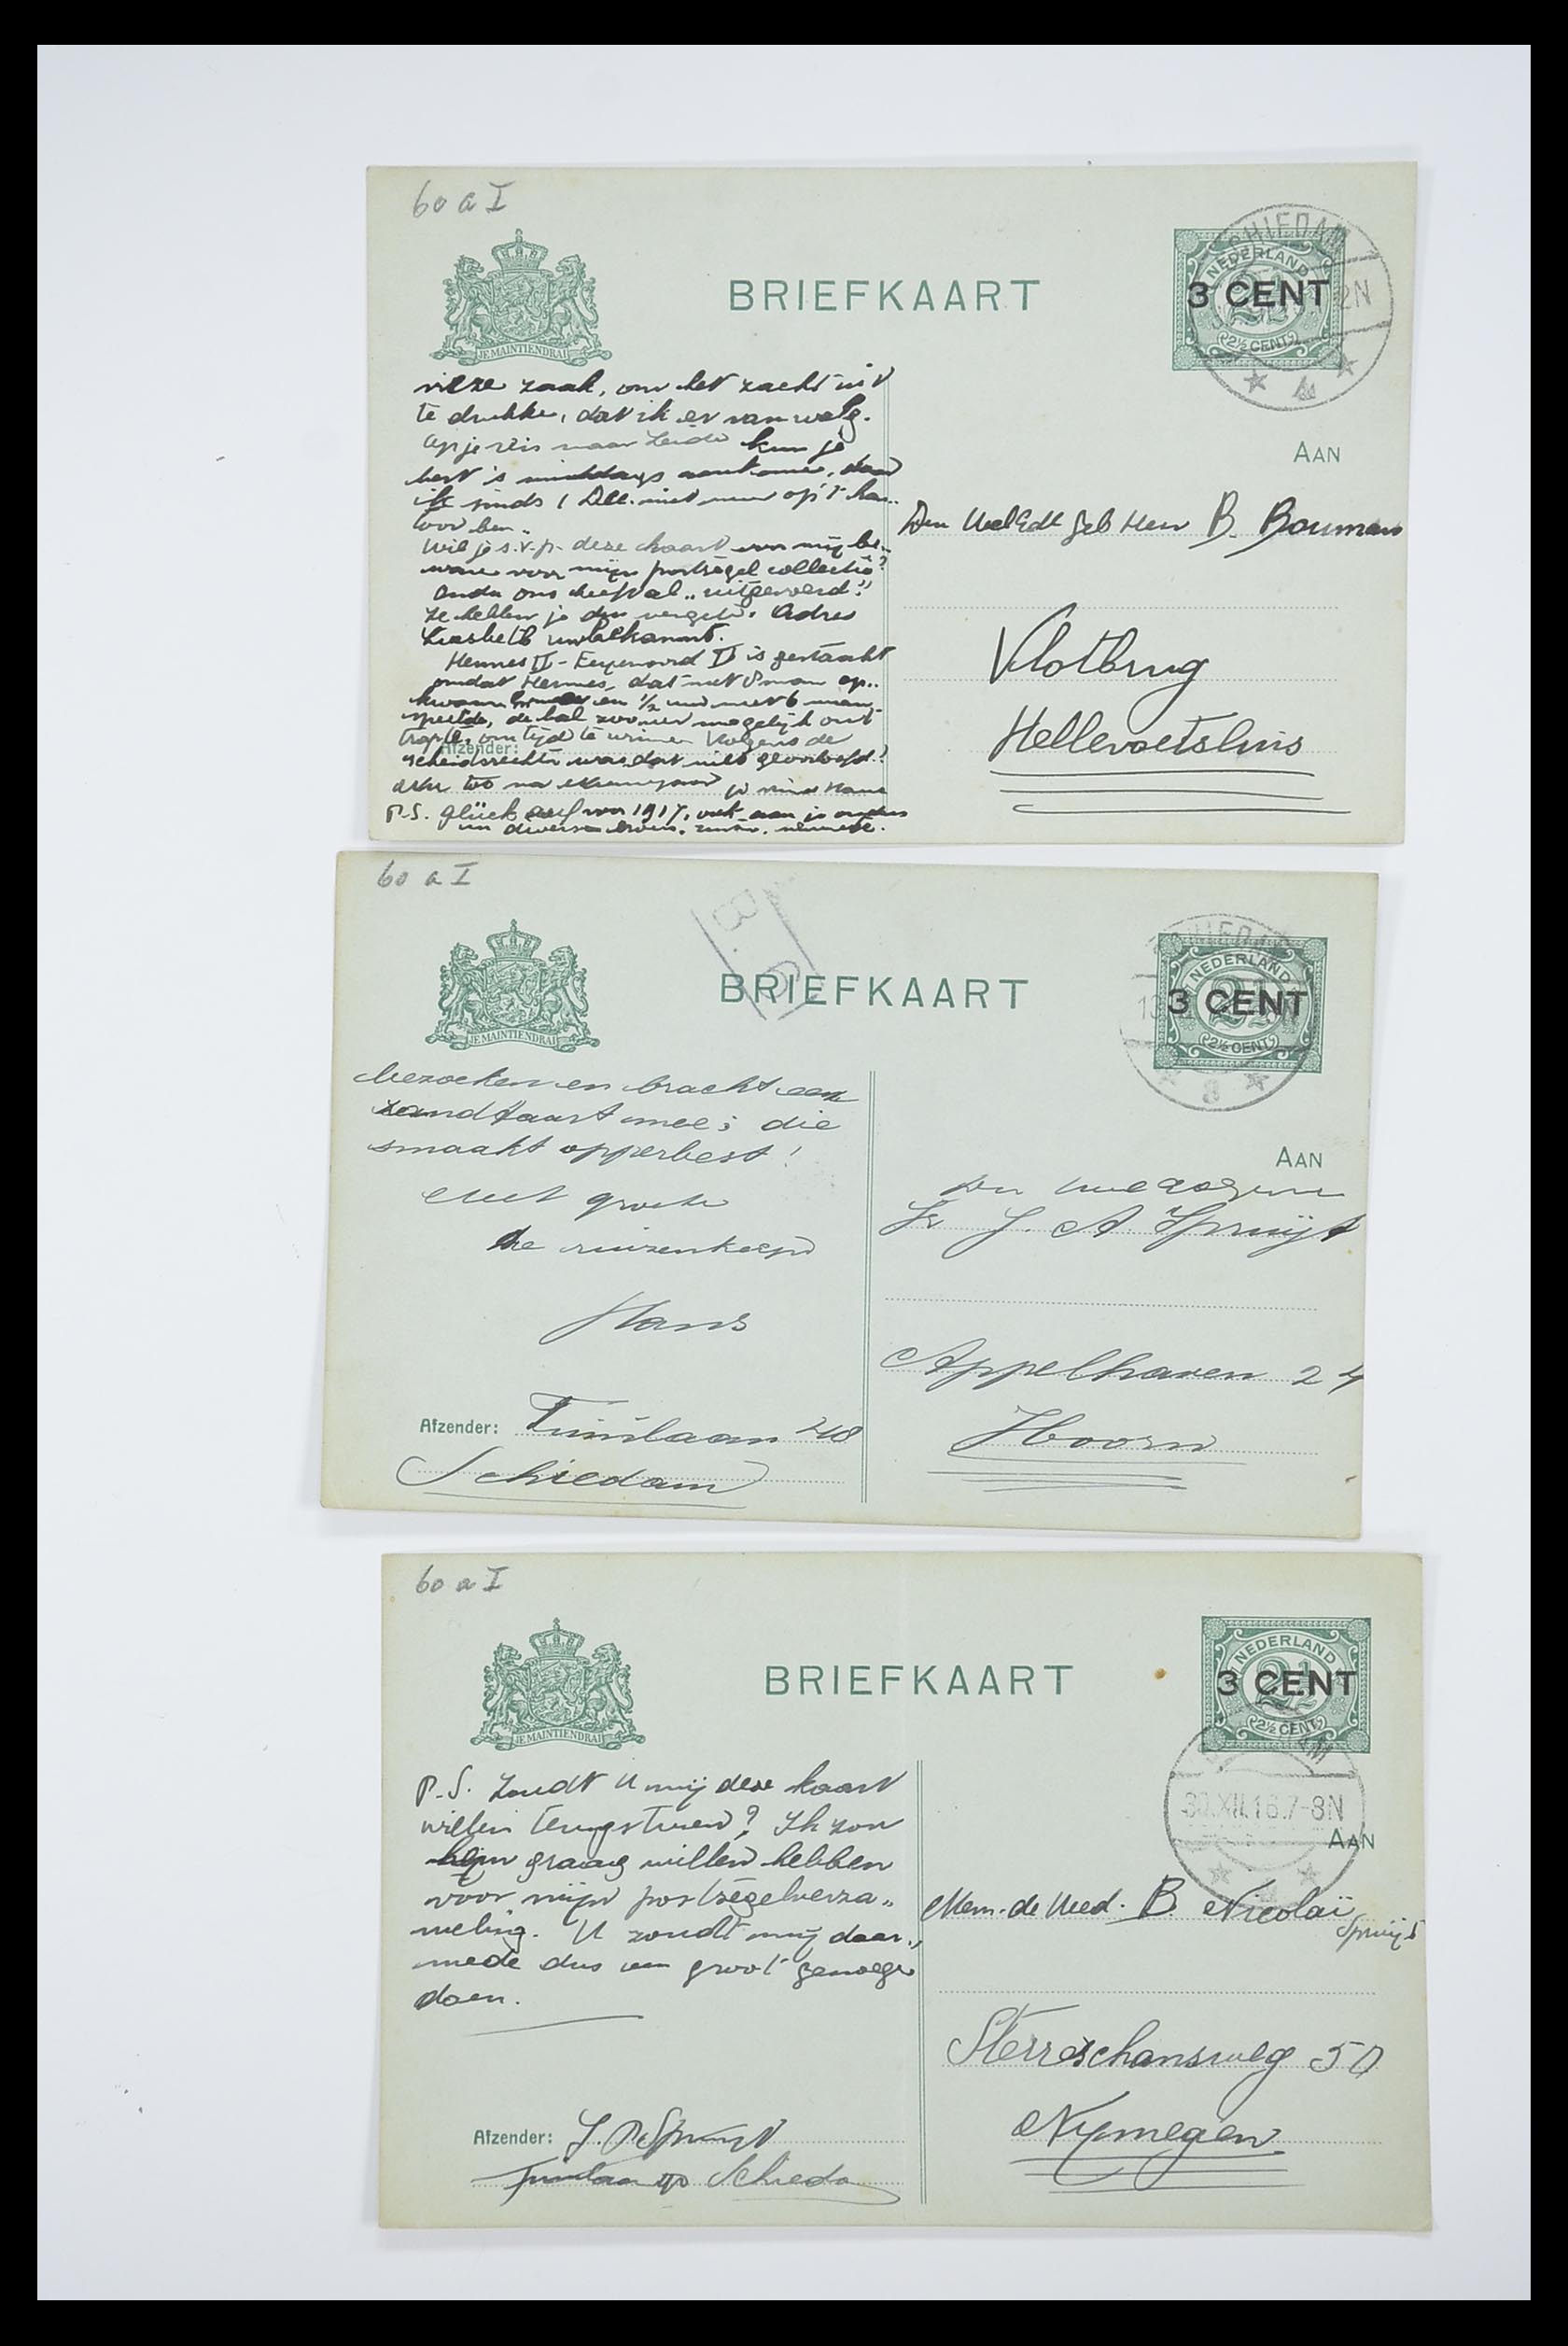 60 a I
JE MAINTIENDRAI
BRIEFKAART
SCHIEDAM
NEDERLAND
3 CENT
2½ CENT
2N
vieze zaak, om het zacht uit
te drukke, dat ik er van walg.
Op je reis naar Leide kun je
best 's middags aankome, daar
ik sinds 1 Dec. niet meer op 't kan..
toor ben.
Wil je s.v.p. deze kaart voor mij be..
ware voor mijn postzegel collectie?
ons „uitgevoerd!"
Ze hebben je dus vergete. Adres
Liesbeth unbekannt.
Hermes II - Feyenoord II is gestaakt
omdat Hermes, dat met 8 man op..
kwam en ½ uur met 6 man
speelde, de bal zoover mogelijk out
trapte, om tijd te winnen. Volgens de
scheidsrechter was dat niet geoorloofd!
Afzender:
P.S. glück auf voor 1917, ook aan je ouders
AAN
Den WelEdl Geb Heer B. Bouman
Vlotbrug
Hellevoetsluis
60 a I
JE MAINTIENDRAI
BRIEFKAART
NEDERLAND
3 CENT
2½ CENT
bezoeken en bracht een
zandtaart mee; die
smaakt opperbest!
Met groete
Hans
Afzender: Tuinlaan 48
Schiedam
AAN
J. A. Spruijt
Appelhaven 24
Hoorn
60 a I
JE MAINTIENDRAI
BRIEFKAART
NEDERLAND
3 CENT
2½ CENT
30.XII.16.7-8N
P.S. Zoudt U mij deze kaart
willen terugsturen? Ik zou
hem graag willen hebben
voor mijn postzegelverza„
meling. U zoudt mij daar„
mede dus een groot genoege
doen.
Afzender: J. P. Spruyt
Tuinlaan Schiedam
AAN
Mevr. de Wed. B. Nicolaï
Spruijt
Sterreschansweg 50
Nymegen